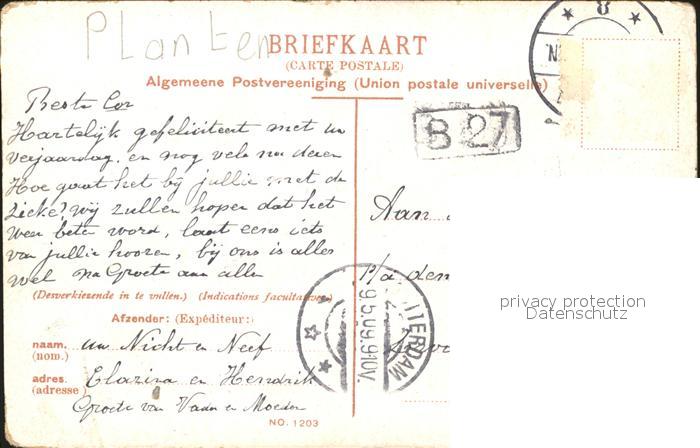 Planten
BRIEFKAART
(CARTE POSTALE)
Algemeene Postvereeniging (Union postale universelle)
8
B 27
Beste Cor
Hartelijk gefeliciteert met uw
verjaardag. en nog vele na dezen
Hoe gaat het bij jullie met de
Zieke? Wij zullen hopen dat het
weer beter word, laat eens iets
van jullie hooren, bij ons is alles
wel na Groete aan allen
Aan
p/a den
(Desverkiezende in te vullen.) (Indications facultatives)
Afzender: (Expéditeur:)
naam. uw Nicht en Neef
(nom.)
adres. Clazina en Hendrik
(adresse)
Groete van Vader en Moeder
NO. 1203
TTERDAM
9 5.09.9-10V.
privacy protection
Datenschutz